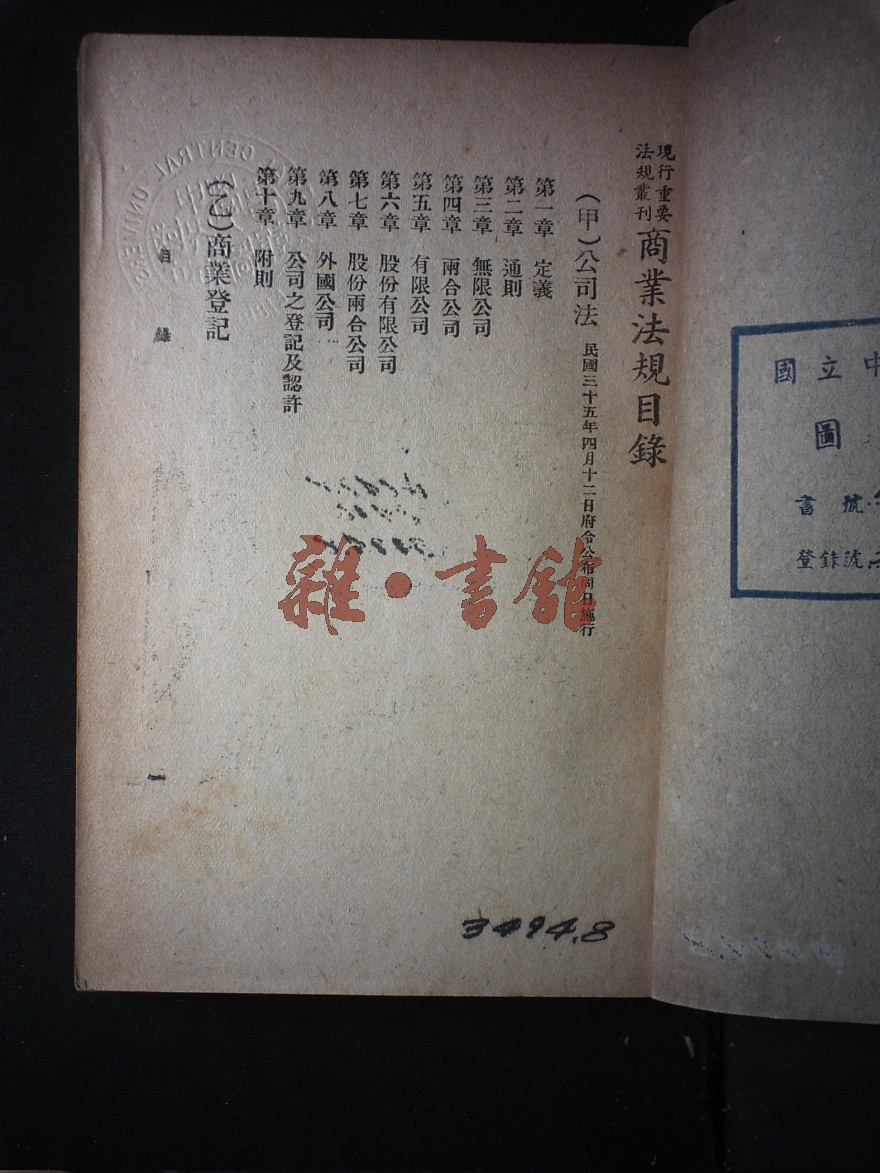 現行重要
法規叢刊
商業法規目錄
（甲）公司法 民國三十五年四月十二日府令公布同日施行
第一章 定義
第二章 通則
第三章 無限公司
第四章 兩合公司
第五章 有限公司
第六章 股份有限公司
第七章 股份兩合公司
第八章 外國公司
第九章 公司之登記及認許
第十章 附則
（乙）商業登記
目錄
一
3494.8
雜·書館
CENTRAL UNIVE
國立中
圖
書號
登錄號